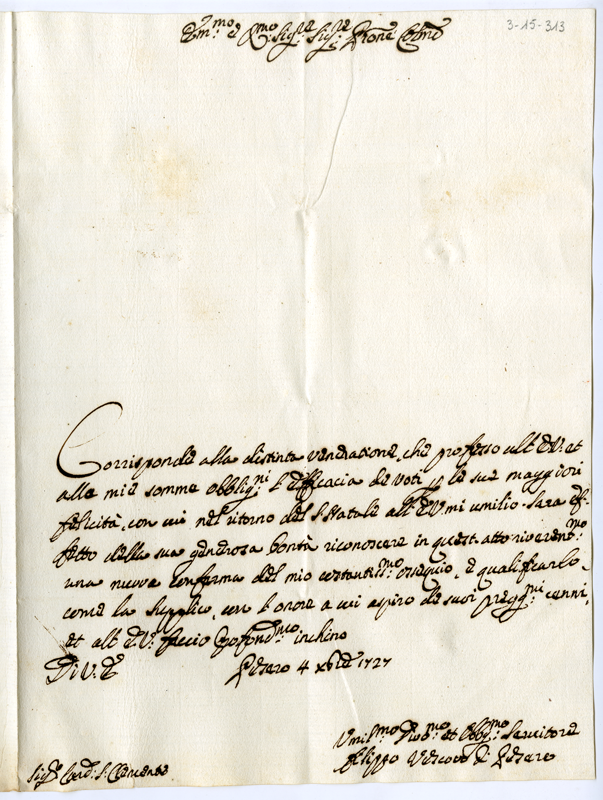 3-15-313
Em:mo e Rmo: Sig:re Sig:re Prone Colmo
Corrisponde alla distinta venerazione, che professo all' E.V. et
alle mie somme obblig:ni l'efficacia de voti p le sue maggiori
felicità, con cui nel ritorno del S. Natale all' E.V. mi umilio. Sara ef-
fetto della sua generosa bontà riconoscere in quest' atto riverent:mo
una nuova conferma del mio costantiss:mo ossequio, e qualificarlo,
come la supplico, con l'onore a cui aspiro de suoi preg:mi cenni,
et all' E.V. faccio profond:mo inchino
Di V.E.
Pesaro 4 Xbre 1727
Umil:mo Dvo:mo et Obblig:mo Servitore
Filippo Vescovo di Pesaro
Sig:r Card: S. Clemente